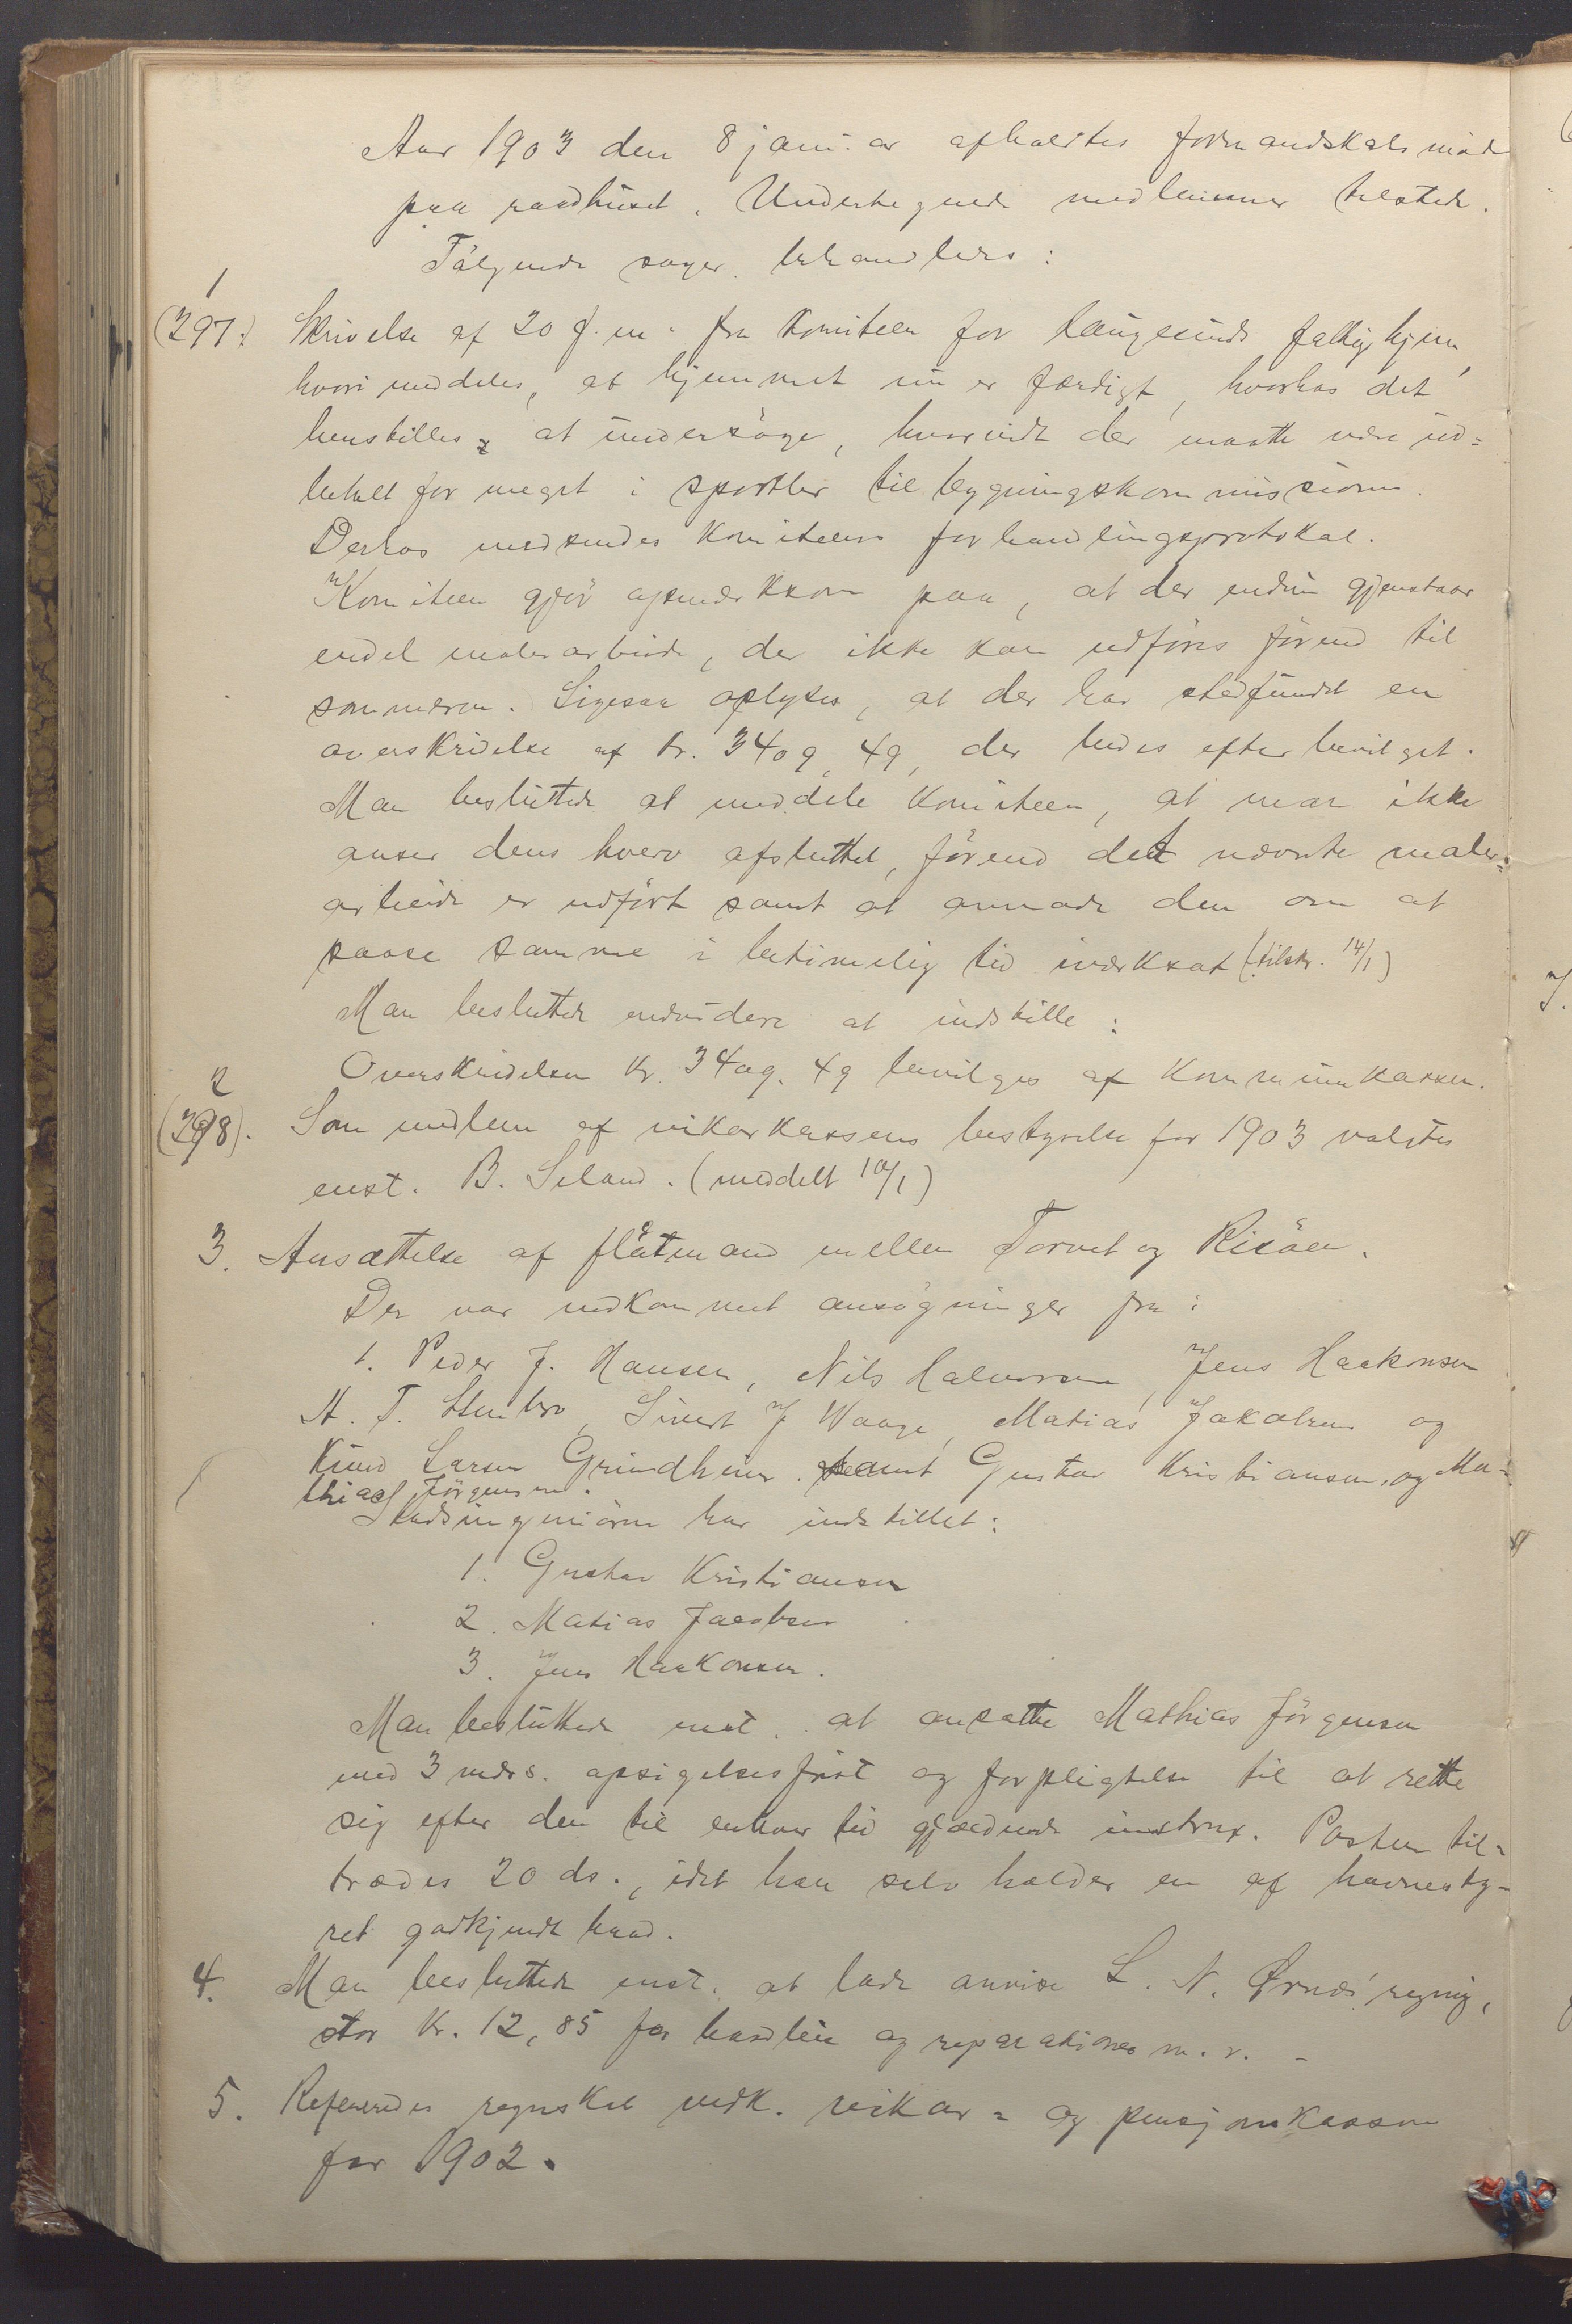 Aar 1903 den 8 januar afholdtes formandskabsmøde
paa raadhuset. Undertegnede medlemmer tilstede.
Følgende sager behandledes:
1
(297.) Skrivelse af 20 f. m. fra komiteen for Haugesunds fattighjem,
hvori meddeles, at hjemmet nu er færdigt, hvorhos det
henstilles at undersöge, hvorvidt der maatte være ud=
betalt for meget i sportler til bygningskommissionen.
Derhos medsendes komiteens forhandlingsprotokol.
Komiteen gjør opmærksom paa, at der endnu gjenstaar
endel malerarbeide, der ikke kan udföres förend til
sommeren. Ligesaa oplyses, at der har stedfundet en
overskridelse af kr. 3409,49, der bedes efterbevilget.
Man besluttede at meddele komiteen, at man ikke
anser dens hverv afsluttet, förend det nævnte maler=
arbeide er udfört samt at anmode den om at
paase samme i betimelig tid iværksat (tilskr. 14/1)
Man besluttede endvidere at indstille:
Overskridelsen kr. 3409.49 bevilges af kommunekassen.
2
(298). Som medlem af vikarkassens bestyrelse for 1903 valgtes
enst. B. Seland. (meddelt 10/1)
3. Ansættelse af flåtmand mellem Torvet og Risöen.
Der var indkommet ansögninger fra:
1. Peder J. Hansen, Nils Halvorsen, Jens Haakonsen
A. T. Stenbro, Sivert J Waage, Matias Jakobsen og
Knud Larsen Grindheim. samt Gustav Kristiansen, og Ma=
thias Jörgensen.
Stadsingeniören har indstillet:
1. Gustav Kristiansen
2. Matias Jacobsen
3. Jens Haakonsen.
Man besluttede enst. at ansætte Mathias Jörgensen
med 3 mdrs. opsigelsesfrist og forpligtelse til at rette
sig efter den til enhver tid gjældende instrux. Posten til=
trædes 20 ds., idet han selv holder en af havnesty=
ret godkjendt baad.
4. Man besluttede enst. at lade anvise L. N. Ørnes' regning,
stor kr. 12,85 for reparationer m. v. -
5. Refereredes regnskab vedk. vikar= og pensjonskassen
for 1902.